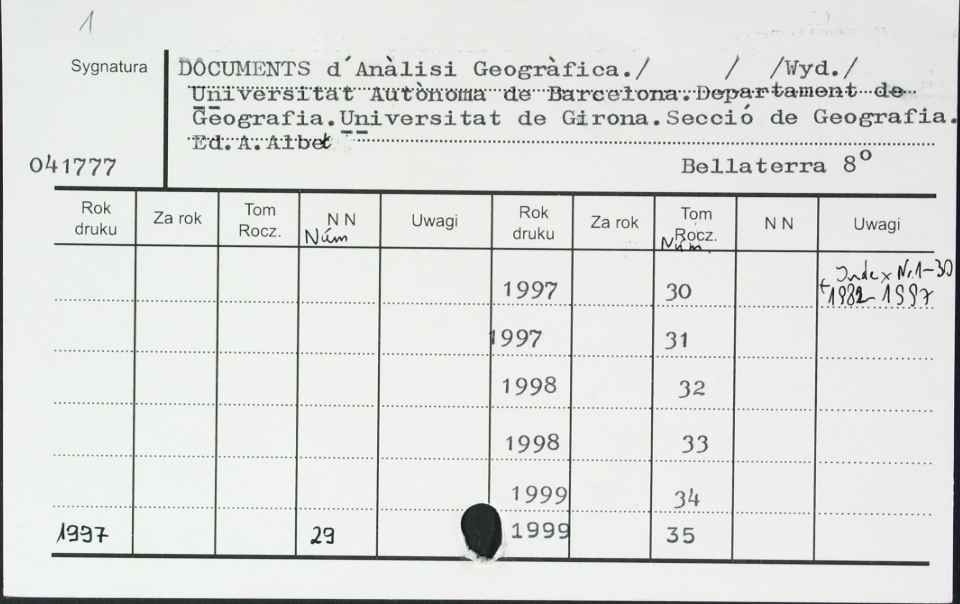 1
Sygnatura
DOCUMENTS d´Anàlisi Geogràfica./ / /Wyd./
Universitat Autònoma de Barcelona.Departament de
Geografia.Universitat de Girona.Secció de Geografia.
Ed.A.Albet
041777
Bellaterra 8º
Rok druku Za rok Tom Rocz. N N Núm Uwagi Rok druku Za rok Tom Rocz. Núm. N N Uwagi
1997 30 + Index Nr.1-30
1982-1997
1997 31
1998 32
1998 33
1999 34
1997 29 1999 35